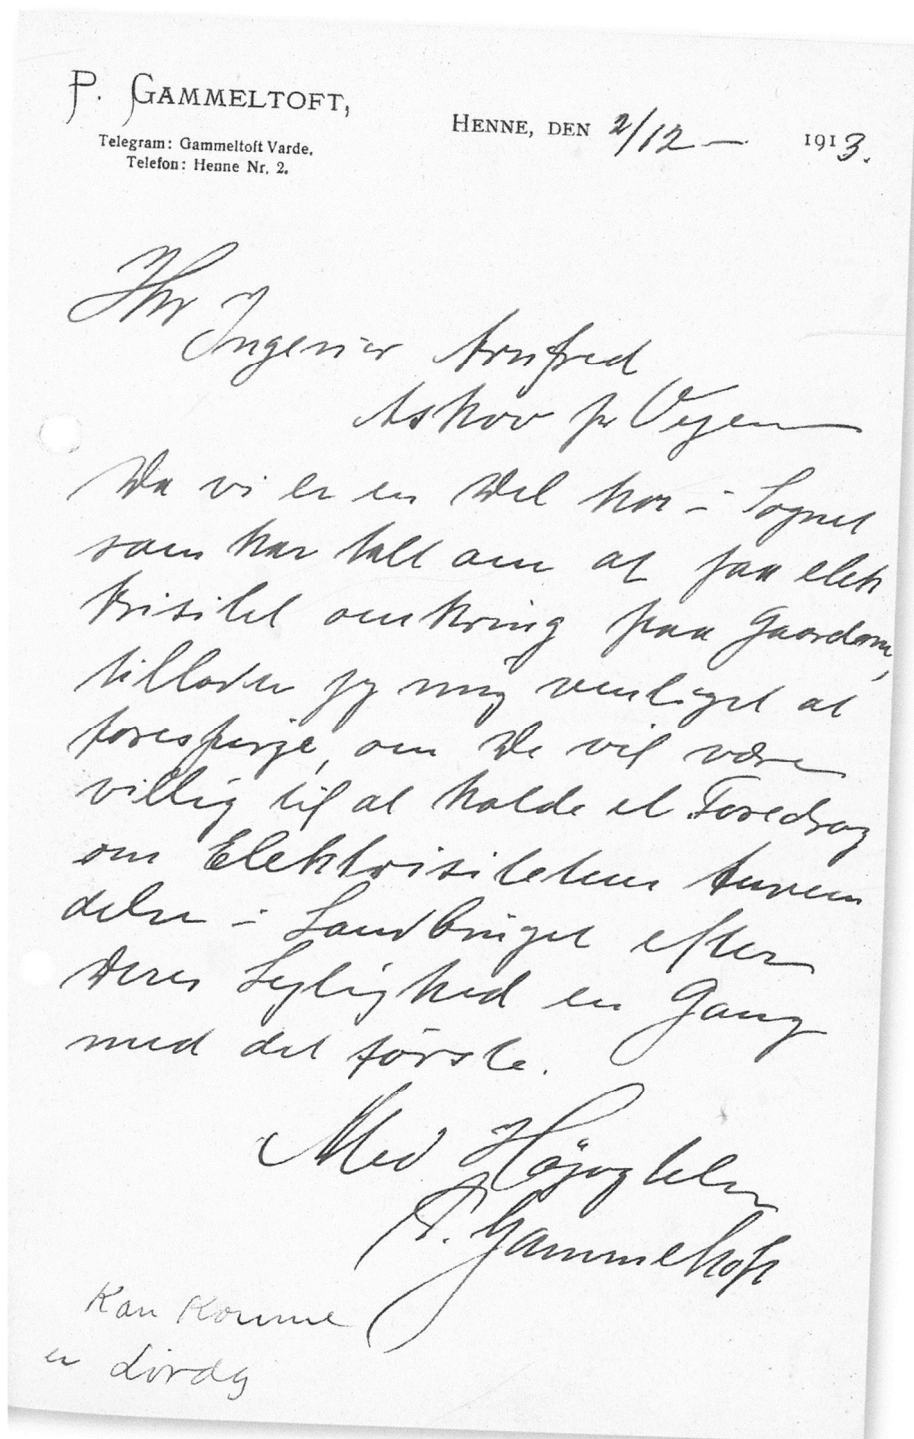 P. GAMMELTOFT,
Telegram: Gammeltoft Varde.
Telefon: Henne Nr. 2.
HENNE, DEN 2/12 — 1913.
Hr
Ingeniør Arnfred
Askov pr Vejen
Da vi er en Del her i Sognet
som har talt om at faa elek
trisitet omkring paa Gaardene,
tillader jeg mig venligst at
forespørge, om De vil være
villig til at holde et Foredrag
om Elektrisitetens Anven
delse i Landbruget efter
Deres Lejlighed en Gang
med det første.
Med Højagtelse
P. Gammeltoft
Kan komme
en Lørdag